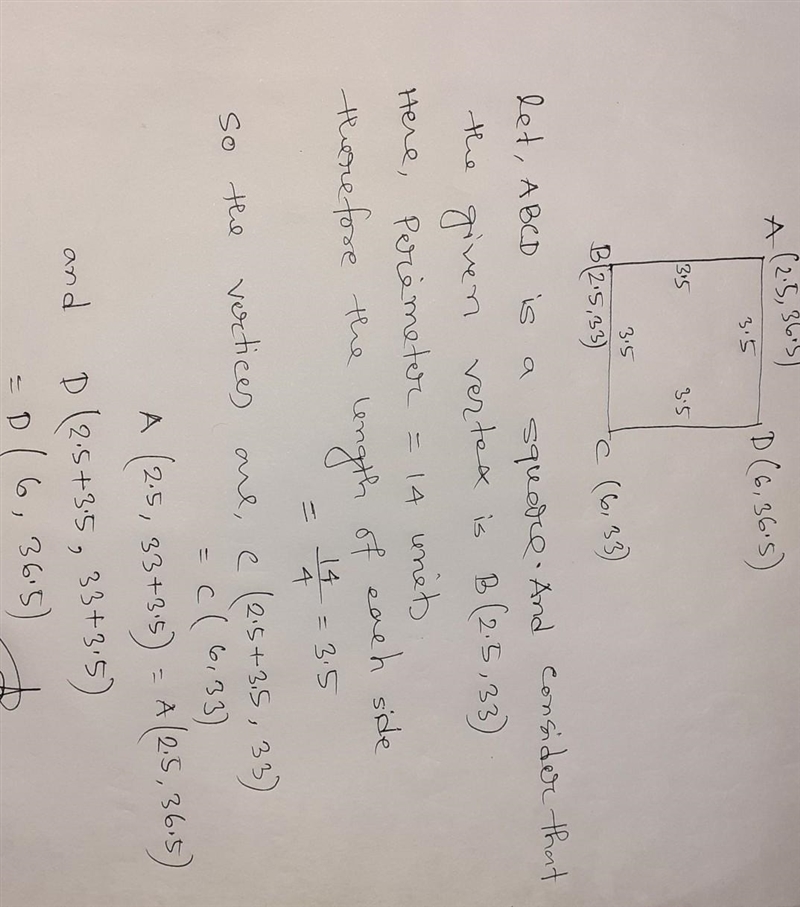 A (2.5, 36.5)
D (6, 36.5)
3.5
3.5
3.5
3.5
B(2.5,33)
C (6,33)
let, ABCD is a square. And consider that
the given vertex is B (2.5,33)
Here, Perimeter = 14 units
therefore the length of each side
= 14/4 = 3.5
So the vertices are, C (2.5+3.5, 33)
= C (6,33)
A (2.5, 33+3.5) = A(2.5, 36.5)
and D (2.5+3.5, 33+3.5)
= D (6, 36.5)